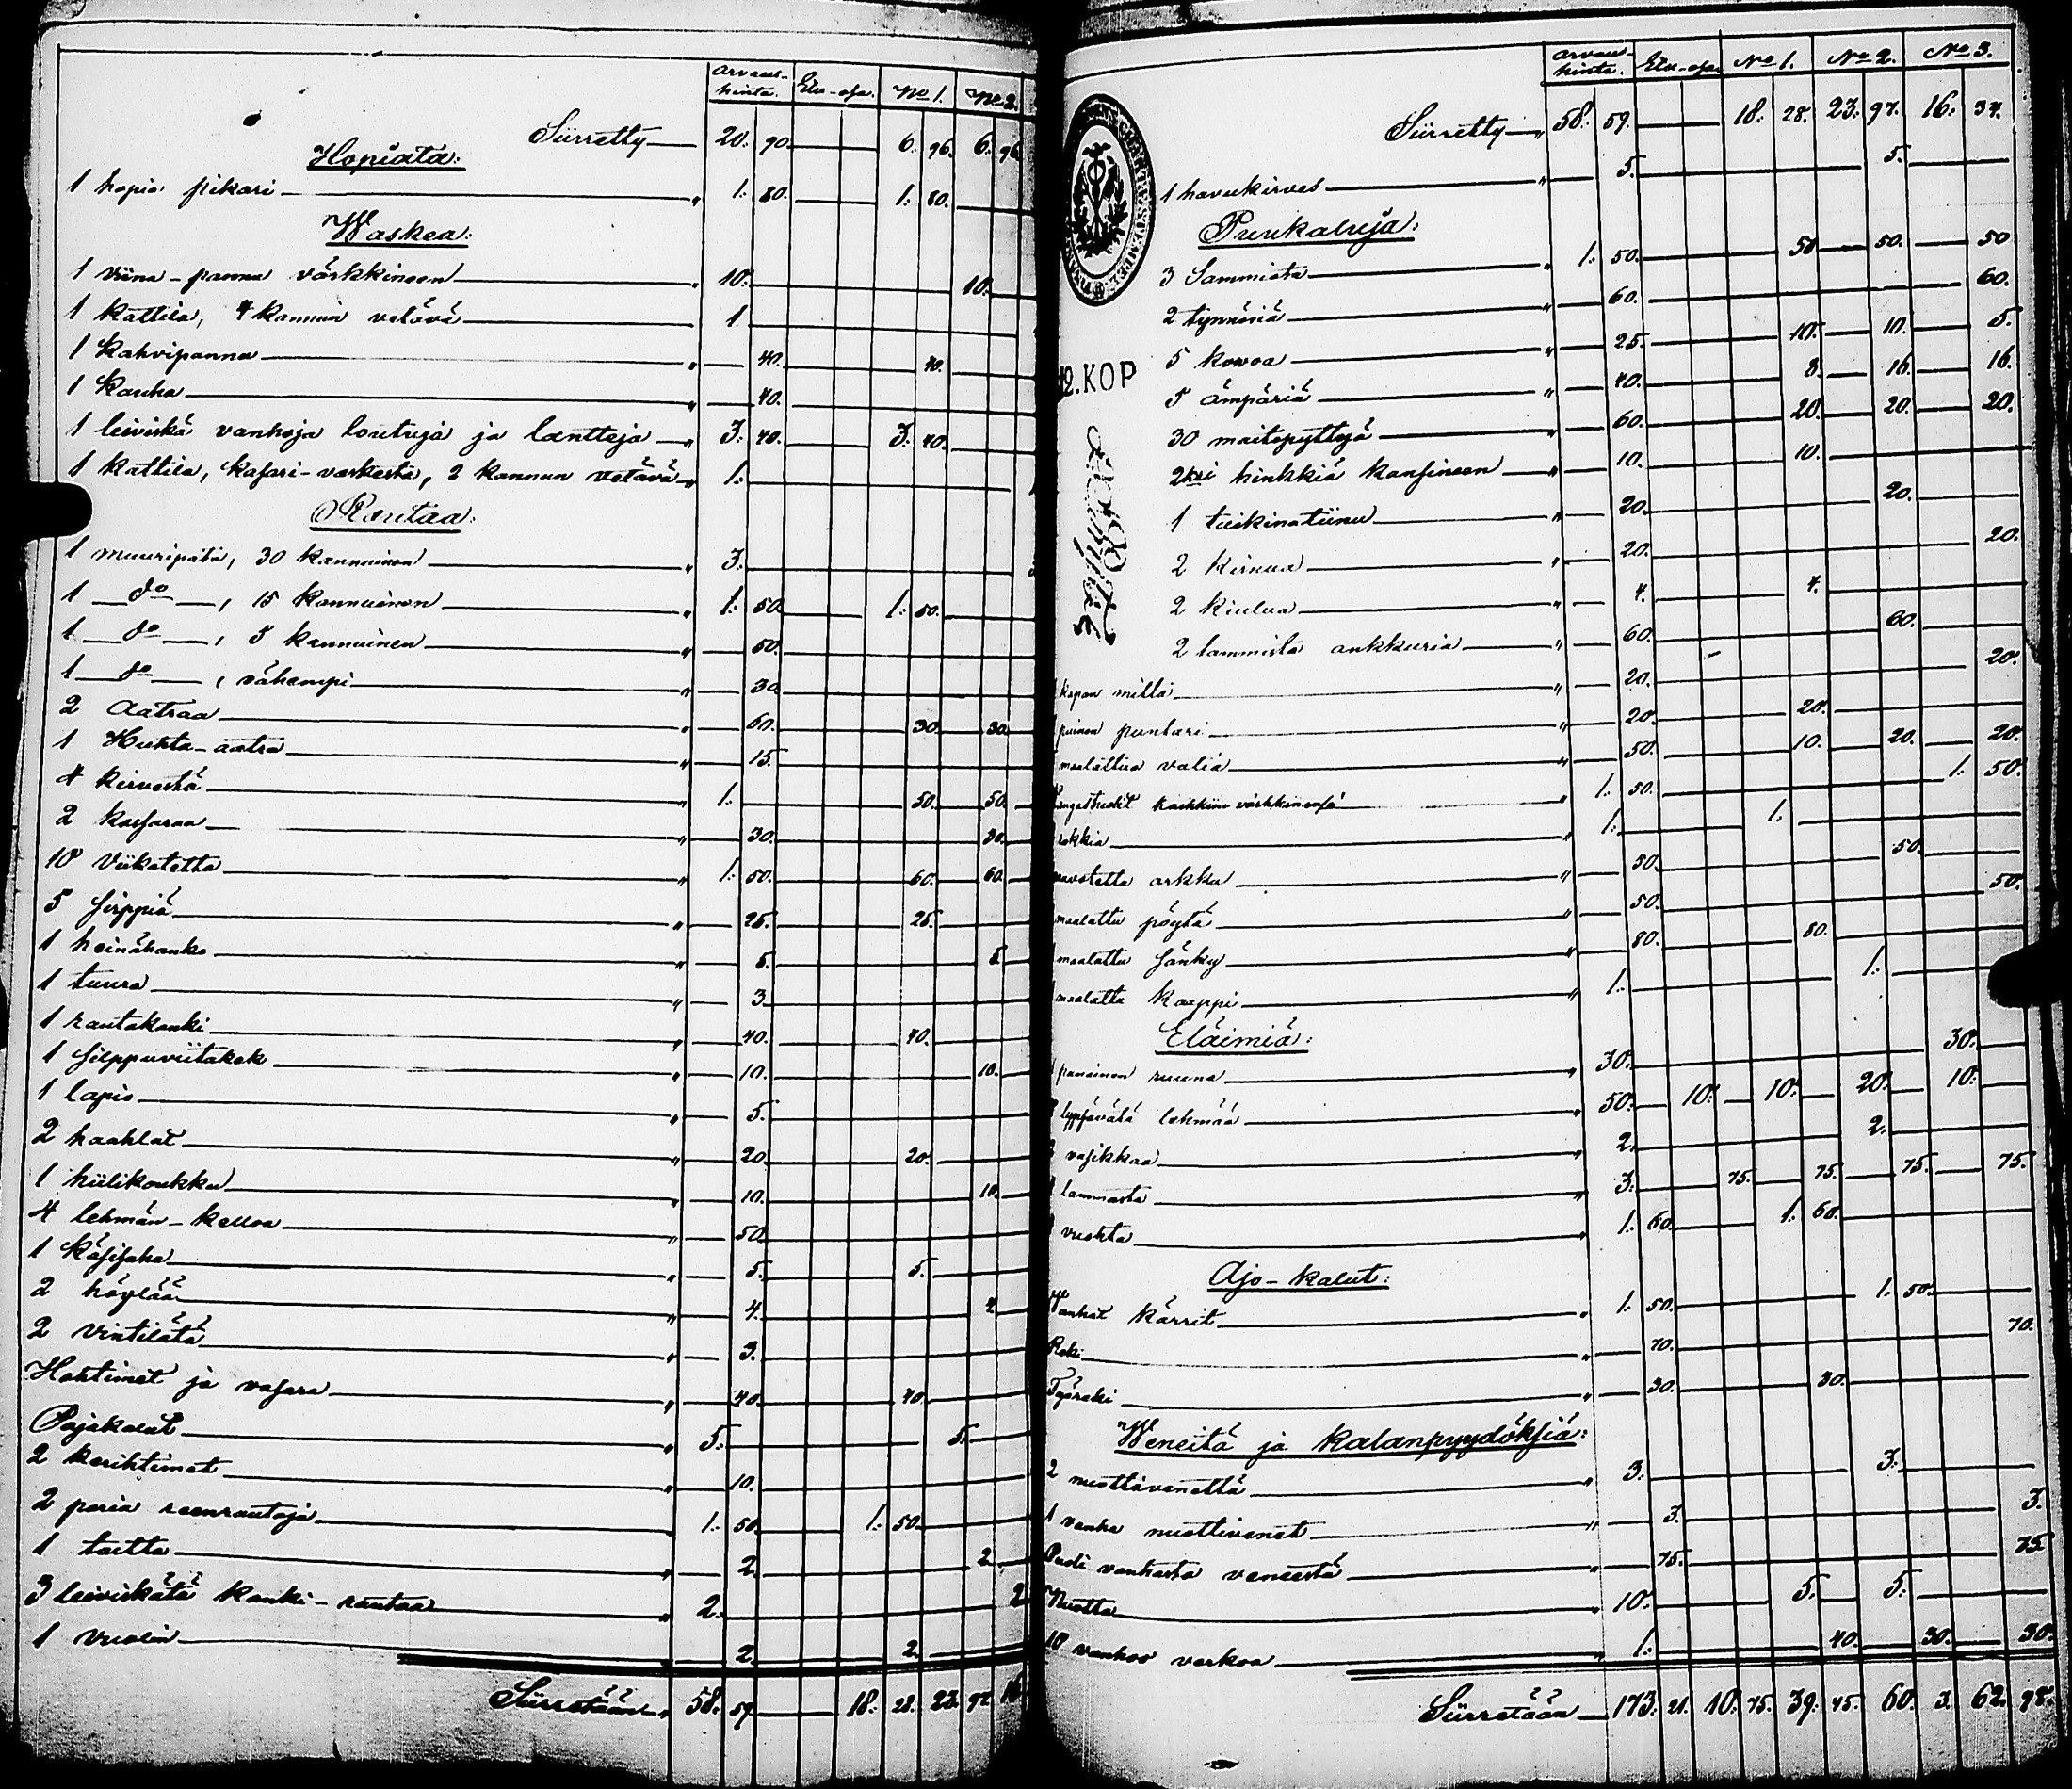 Arvaus-hinta. Etu-osa. No 1. No 2.
Siirretty 20: 90. 6: 96. 6: 96
Hopiata:
1 hopia pikari " 1: 80. 1: 80.
Waskea:
1 viina-pannu värkkineen " 10: 10:
1 kattila, 4 kannun vetävä " 1.
1 Kahvipannu " 40. 40.
1 Kauha " 40.
1 leiviskä vanhoja loutuja ja lantteja " 3: 40. 3: 40.
1 kattila, kasari-vaskesta, 2 kannun vetävä " 1:
Rautaa:
1 muuripata, 30 kannuinen " 3.
1 do, 15 kannuinen " 1: 50 1: 50.
1 do, 5 kannuinen " 50.
1 do, vähempi " 30
2 Aatraa " 60. 30. 30.
1 Huhta-aatra " 15.
4 kirvestä " 1: 50. 50.
2 kassaraa " 30. 30.
10 Viikatetta " 1: 50. 60. 60.
5 sirppiä " 25. 25.
1 heinähanko " 5. 5
1 tuura " 3
1 rautakanki " 40. 40.
1 silppuviitakek " 10. 10.
1 lapio " 5.
2 haahlat " 20 20.
1 hiilikoukku " 10. 10.
4 lehmän-kelloa " 50
1 Käsisaha " 5. 5.
2 höylää " 4. 4
2 vintilätä " 3.
Hohtimet ja vasara " 40. 40.
Pajakalut " 5: 5:
2 kerihtimet " 10.
2 paria reenrautoja " 1: 50 1: 50.
1 taltta " 2. 2
3 leiviskätä kanki-rautaa " 2: 2
1 vuolin " 2. 2.
Siirretään " 58: 59. 18: 28. 23. 97. 16
Arvaus-hinta. Etu-osa. No 1. No 2. No 3.
Siirretty " 58: 59. 18: 28. 23: 97. 16: 34.
1 havukirves " 5. 5.
Puukaluja:
3 Sammiota " 1: 50. 50 50. 50
2 tynnöriä " 60. 60.
5 korvoa " 25. 10. 10. 5.
12.KOP
5 ämpäriä " 40. 8. 16. 16.
30 maitopyttyä " 60. 20. 20. 20.
2ksi hinkkiä kansineen " 10. 10.
1 taikinatiinu " 20. 20.
2 kirnua " 20. 20.
2 kiulua " 4. 4.
2 tammista ankkuria " 60. 60.
kapan mitta " 20. 20.
puinen puntari " 20. 20.
maalattua valia " 50. 10. 20. 20.
kangastuolit kaikkine värkkinensä " 1: 50. 1: 50.
rokkia " 1: 1:
raudotettu arkku " 50. 50.
maalattu pöytä " 50. 50.
maalattu sänky " 80. 80.
maalattu kaappi " 1: 1:
Eläimiä:
punainen ruuna " 30: 30:
lypsävätä lehmää " 50: 10: 10: 20: 10:
vasikkaa " 2. 2.
lammasta " 3: 75. 75. 75. 75.
vuohta " 1: 60. 1: 60.
Ajo-kalut:
Vanhat kärrit " 1: 50. 1: 50.
Reki " 70. 70.
Työreki " 30. 30.
Weneitä ja kalanpyydöksiä:
2 nuottavenettä " 3: 3:
1 vanha nuottivenet " 3. 3.
Puoli vanhasta veneestä " 75. 75
Nuotta " 10: 5: 5:
10 vanhoo verkoa " 1: 40. 30. 30.
Siirretään 173: 21. 10: 75. 39: 45. 60. 3. 62. 98.